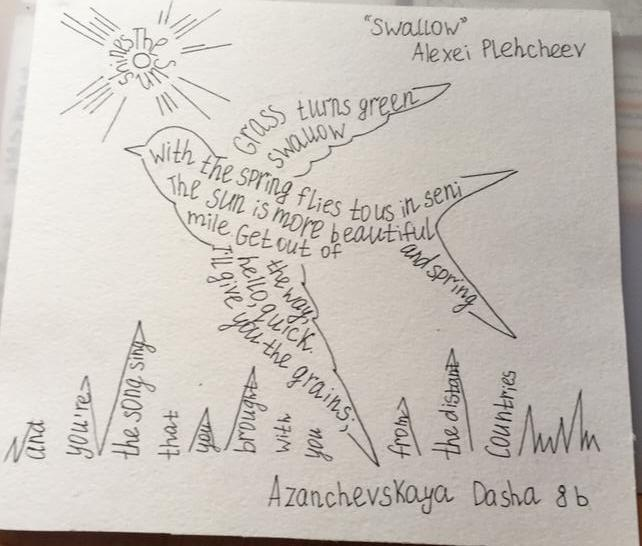 "Swallow"
Alexei Plehcheev
The
Sun
shines
Grass turns green
swallow
with the spring flies to us in seni
The sun is more beautiful
and spring
mile. Get out of
the way,
hello, quick.
I'll give you the grains;
and you're the song sing that you brought with you from the distant countries
Azanchevskaya Dasha 8b